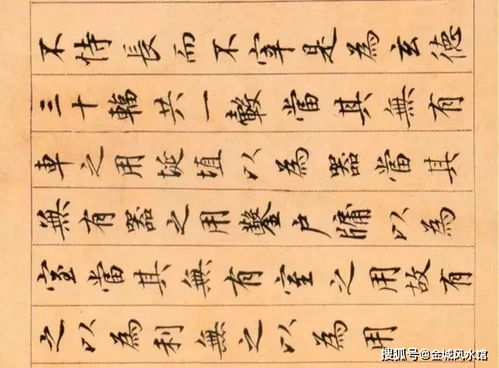 不恃長而不宰是為玄德
三十輻共一轂當其無有
車之用埏埴以為器當其
無有器之用鑿戶牖以為
室當其無有室之用故有
之以為利無之以為用
搜狐号@金城风水馆